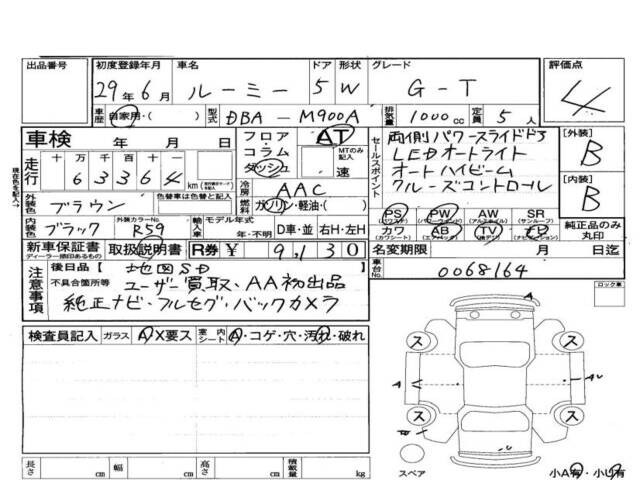 出品番号 初度登録年月 車名 ドア 形状 グレード 評価点
29年6月 ルーミー 5 W G-T 4
車歴 自家用・( ) 型式 DBA-M900A 排気量 1000cc 定員 5人
車検 年 月 日 フロア AT
コラム MTのみ記入
ダッシュ 速
走行 十 万 千 百 十 一
63364 km
現在色を記入→
外装色 ブラウン 色替車は色替と記入
冷房 AAC
燃料 ガソリン・軽油・( )
内装色 ブラック 外装カラーNo. R59 輸入車 モデル年式 年・不明 D車・並 右H・左H
セールスポイント
両側パワースライドドア
LEDオートライト
オートハイビーム
クルーズコントロール
[外装] B
[内装] B
PS PW AW SR
カワ AB TV ナビ
(カワシート) (エアバッグ)
純正品のみ丸印
新車保証書 取扱説明書 R券 ¥ 9,130
ディーラー捺印あるもの
名変期限 月 日迄
車台No. 0068164
注意事項 後日品 地図SD
不具合箇所等 ユーザー買取、AA初出品
純正ナビ・フルセグ・バックカメラ
ロック車
検査員記入 ガラス A X要ス 室内シート A・コゲ・穴・汚れ・破れ
A
ス ス
A A U
ス ス
スペア
長さ cm 幅 cm 高さ cm 積載量 kg
小A有・小U有